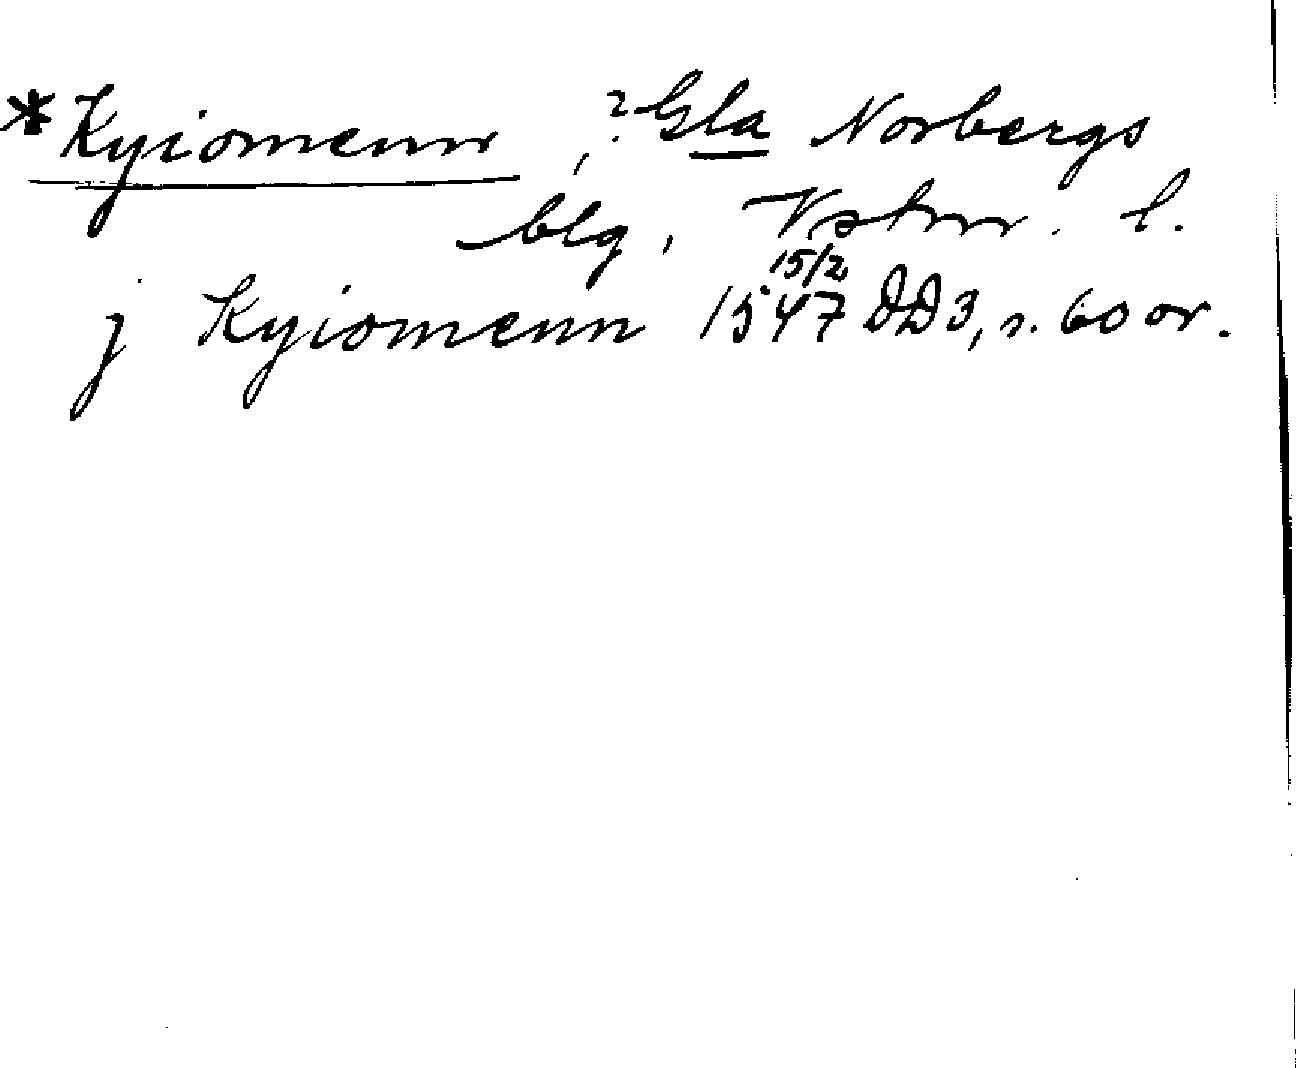 *Kyiomenn, ? Gla Norbergs
blg, Vstm. l.
j Kyiomenn 15/2 1547 DD3, s. 60 or.